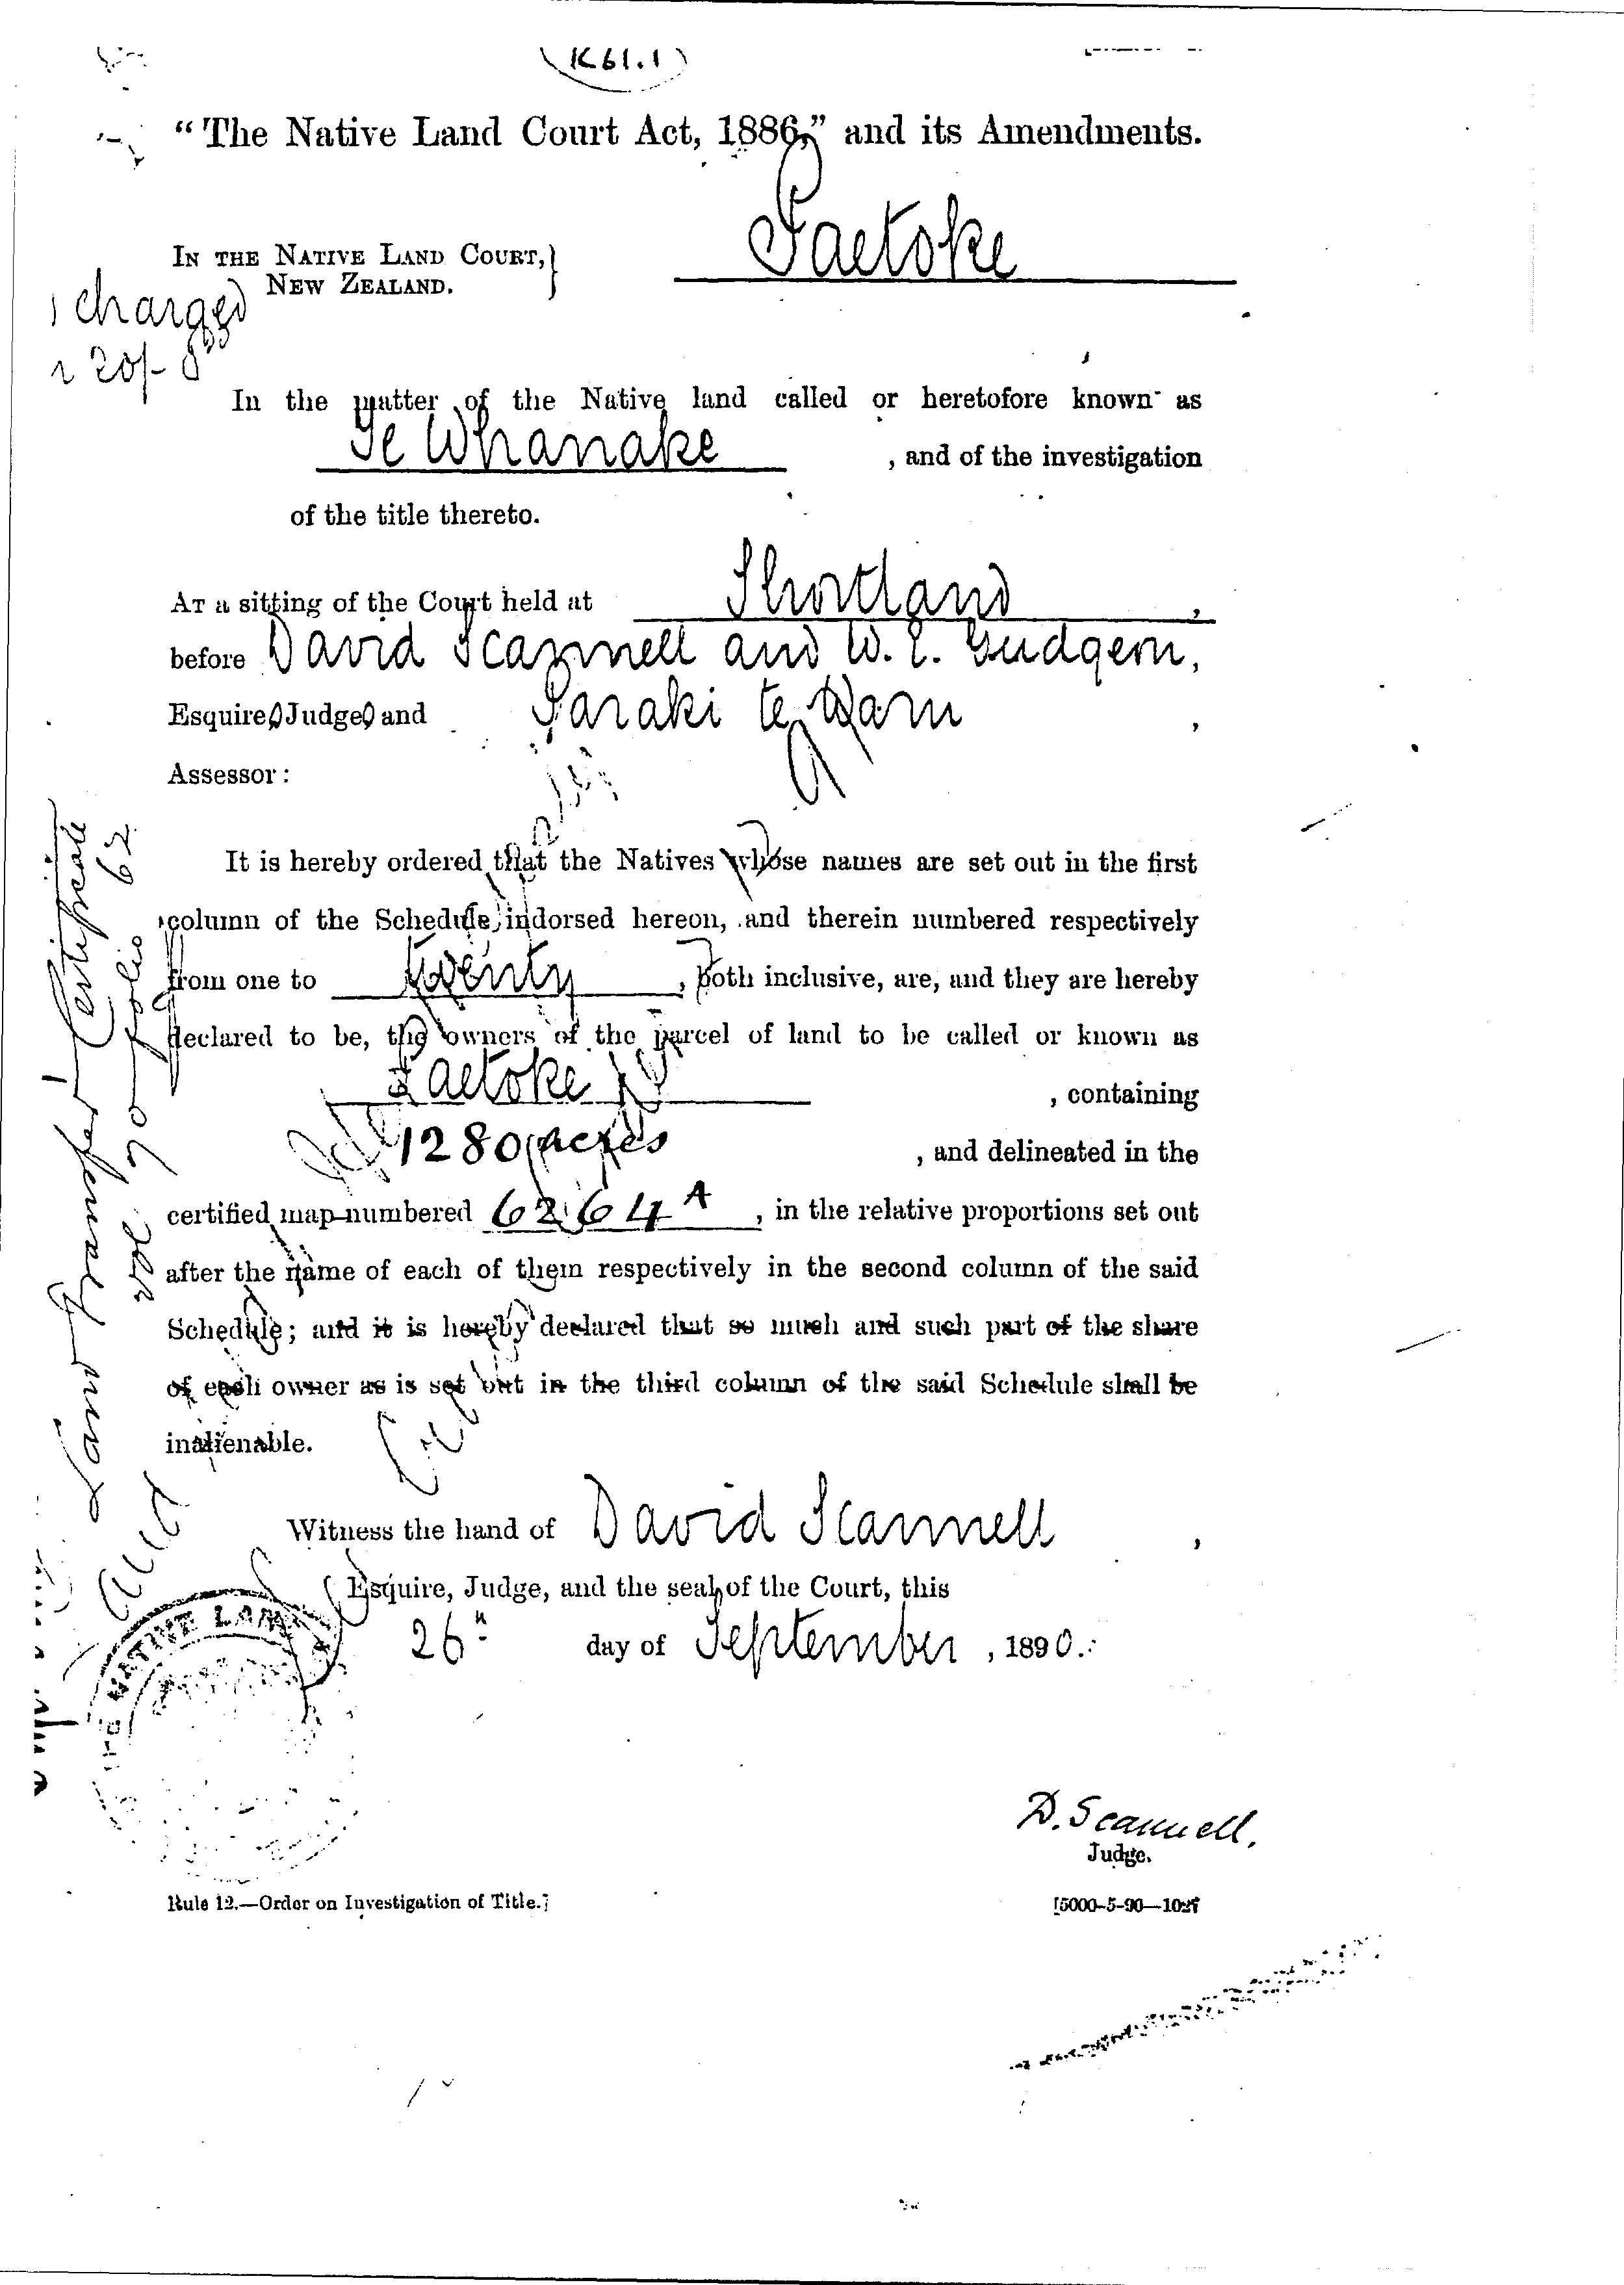 (K61.1)
"The Native Land Court Act, 1886," and its Amendments.
IN THE NATIVE LAND COURT,
NEW ZEALAND.
Taetoke
charged
20/-
In the matter of the Native land called or heretofore known as
Te Whanake , and of the investigation
of the title thereto.
AT a sitting of the Court held at Shortland,
before David Scannell and W. E. Gudgeon,
Esquires Judges and Paraki te
Assessor:
It is hereby ordered that the Natives whose names are set out in the first
column of the Schedule indorsed hereon, and therein numbered respectively
from one to twenty, both inclusive, are, and they are hereby
declared to be, the owners of the parcel of land to be called or known as
Taetoke , containing
1280 acres , and delineated in the
certified map numbered 6264 A , in the relative proportions set out
after the name of each of them respectively in the second column of the said
Schedule; and it is hereby declared that so much and such part of the share
of each owner as is set out in the third column of the said Schedule shall be
inalienable.
Land Transfer Certificate
vol 70 folio 62
Witness the hand of David Scannell,
Esquire, Judge, and the seal of the Court, this
26th day of September, 1890.
NATIVE LAND
D. Scannell.
Judge.
Rule 12.—Order on Investigation of Title.]
[5000-5-90—1027